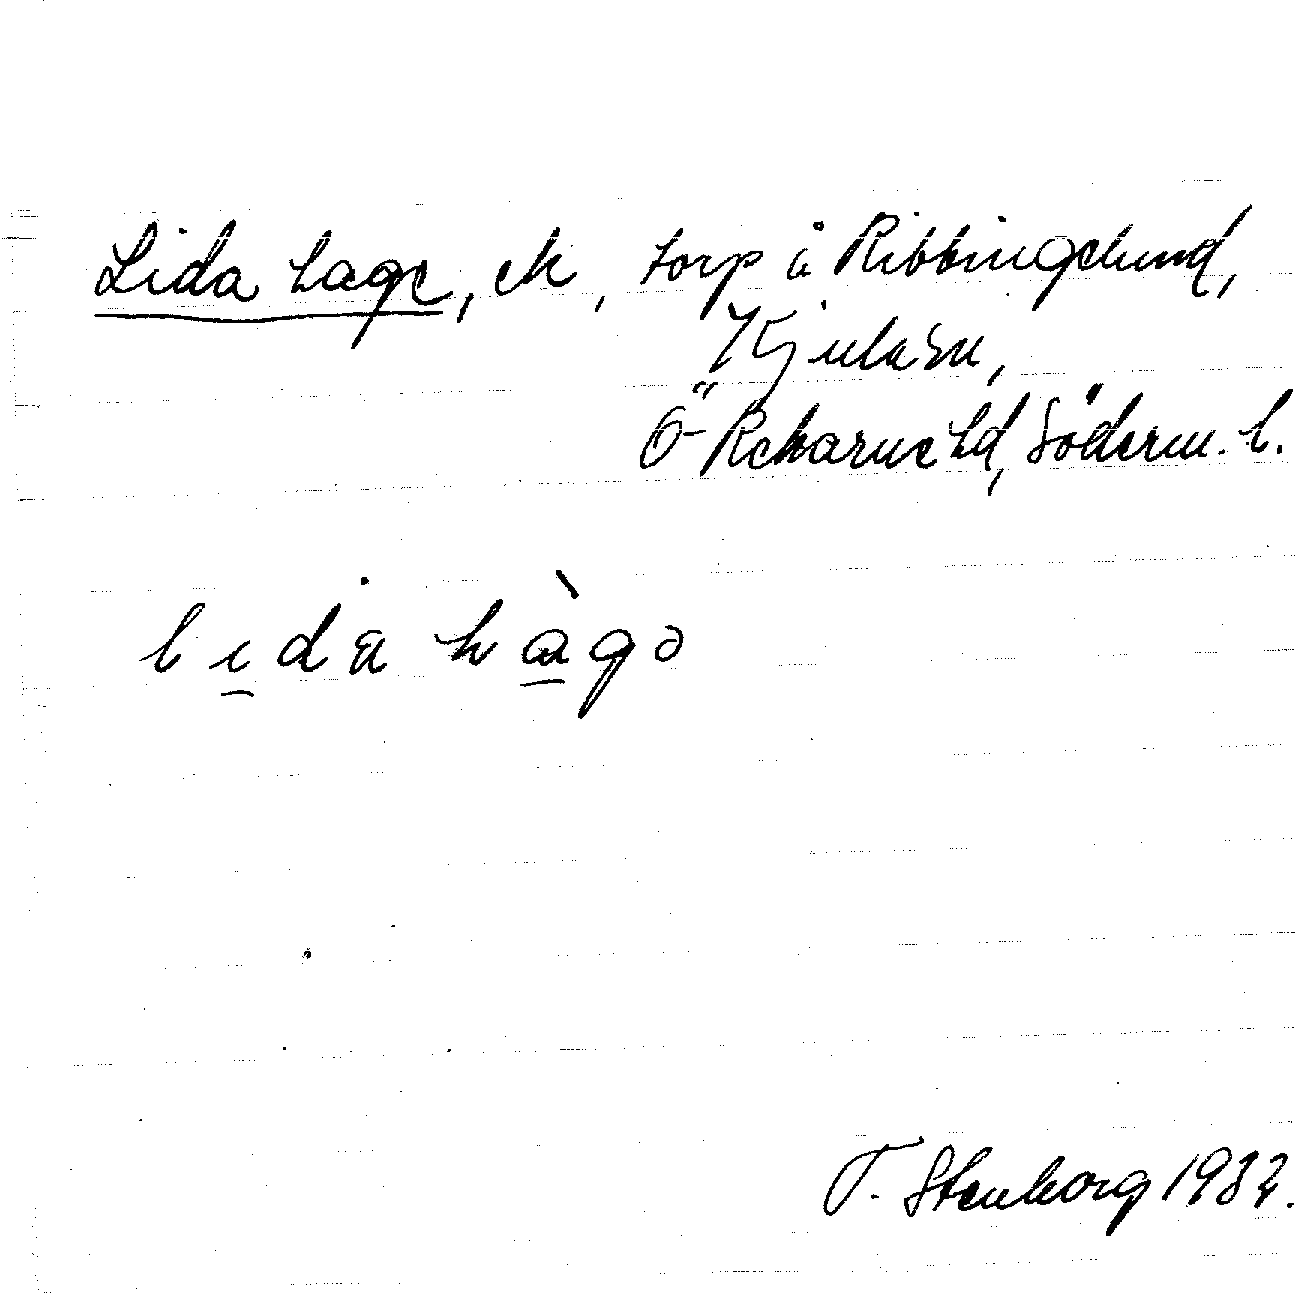 Lida hage, ek, torp å Ribbingelund,
Kjula sn,
Ö Rekarne hd, Söderm. l.
lịda hàgə
T. Stenborg 1932.